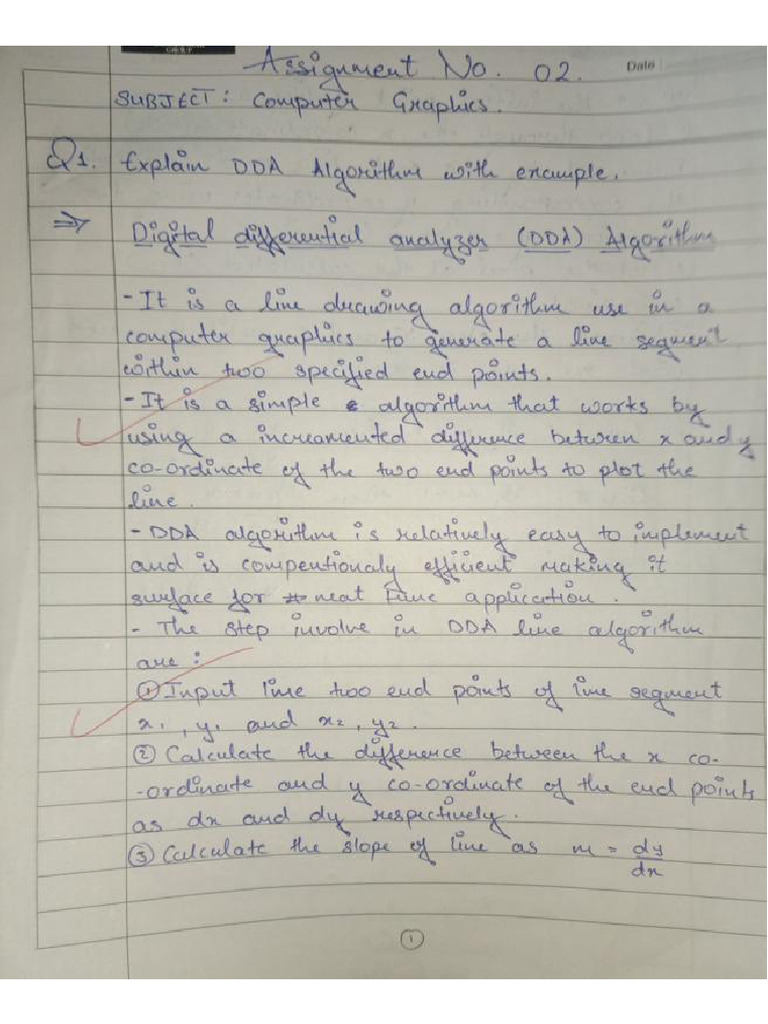 Assignment No. 02.
Date
SUBJECT: Computer Graphics.
Q1. Explain DDA Algorithm with example.
⇒ Digital differential analyzer (DDA) Algorithm
- It is a line drawing algorithm use in a
computer graphics to generate a line segment
within two specified end points.
- It is a simple algorithm that works by
using a increamented difference between x and y
co-ordinate of the two end points to plot the
line.
- DDA algorithm is relatively easy to implement
and is compentionaly efficient making it
surface for neat time application.
- The step involve in DDA line algorithm
are :
① Input line two end points of line segment
x₁, y₁ and x₂, y₂.
② Calculate the difference between the x co-
-ordinate and y co-ordinate of the end points
as dx and dy respectively.
③ Calculate the slope of line as m = dy
dx
①